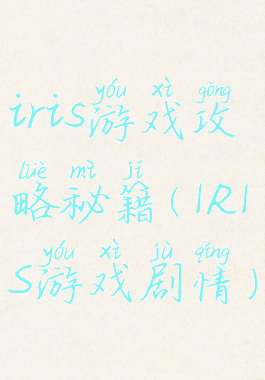 yóu xì gōng
iris游戏攻
lüè mì jí
略秘籍(IRI
yóu xì jù qíng
S游戏剧情)